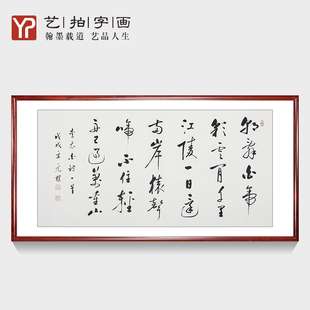 YP
艺拍字画
翰墨载道 艺品人生
朝辞白帝
彩雲間千里
江陵一日還
兩岸猿聲
啼不住輕
舟已過萬重山
李太白詩一首
戊戌年